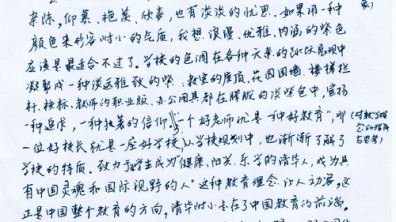 杂陈。仰慕、艳羡、欣喜,也有淡淡的忧思。如果用一种
颜色来形容附小的气质,我想,浪漫、优雅、内涵的紫色
应该是最适合不过了。学校的色调在各种元素的
凝聚成一种淡远雅致的紫。教室的屋顶、花园围墙、楼梯栏
杆、校标、教师的职业服、办公用具都在朦胧的淡紫色中,宣扬
一种追求,一种执著的信仰。"一个好老师就是一种好教育",
一位好校长就是一座好学校"。从学校规划中,也渐渐了解了
学校的特质。致力于学生成为"健康、阳光、乐学的清华人,成为具
有中国灵魂和国际视野的人"这种教育理念,让人动容。这
正是中国整个教育的方向,清华附小走在了中国教育的前端。